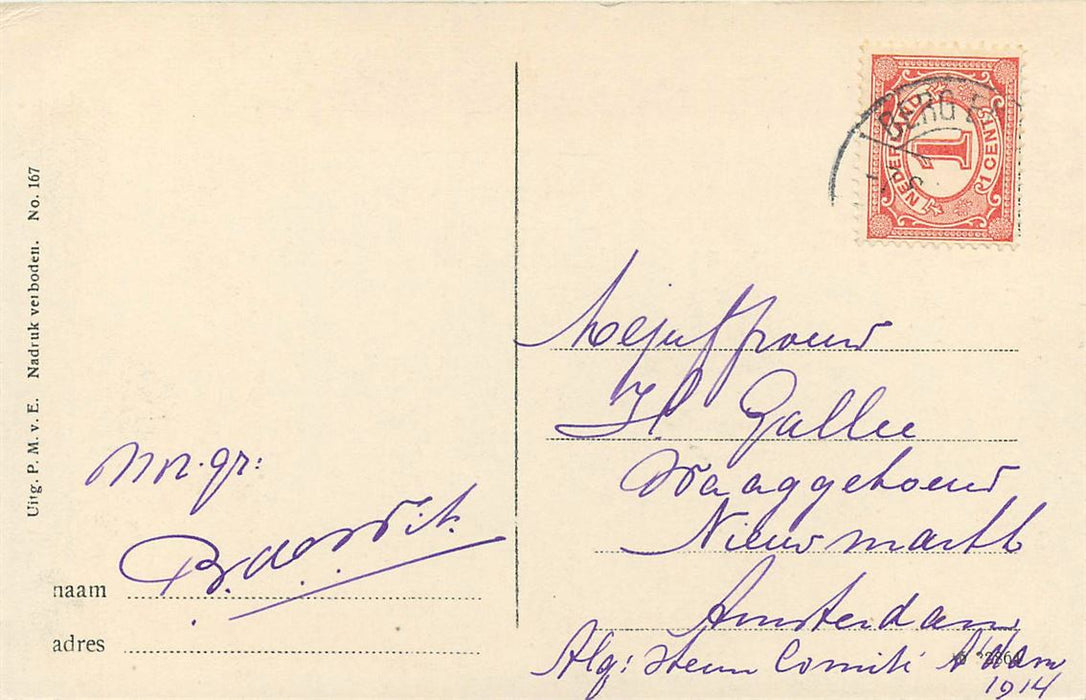 Uitg. P. M. v. E. Nadruk verboden. No. 167
BERG E
NEDERLAND
1
1 CENT
Mejuffrouw
H Gallee
Waaggebouw
Nieuwmarkt
Amsterdam
Alg: Steun Comité A'dam
1914
Vr. gr:
naam
adres